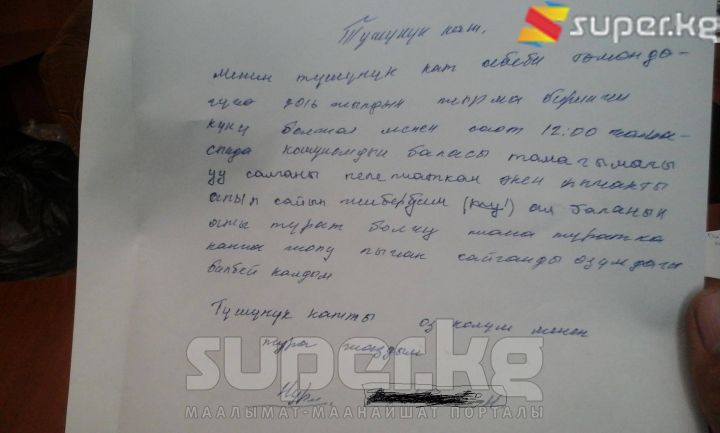 super.kg
Түшүнүк кат.
Менин түшүнүк кат себеби төмөндө-
гүчө 2016 жылдын жыйрма биринчи
күнү болжол менен саат 12:00
кошунамдын баласы тамагымагы
уу салганы келе жаткан экен кичакты
алып сайып жибердим ал баланын
аты Турат болчу жана Туратка
канча жолу пычак сайганды өзүмдагы
билбей калдым
Түшүнүк катты өз колум менен
тура жаздым
super.kg
МААЛЫМАТ-МААНАЙШАТ ПОРТАЛЫ